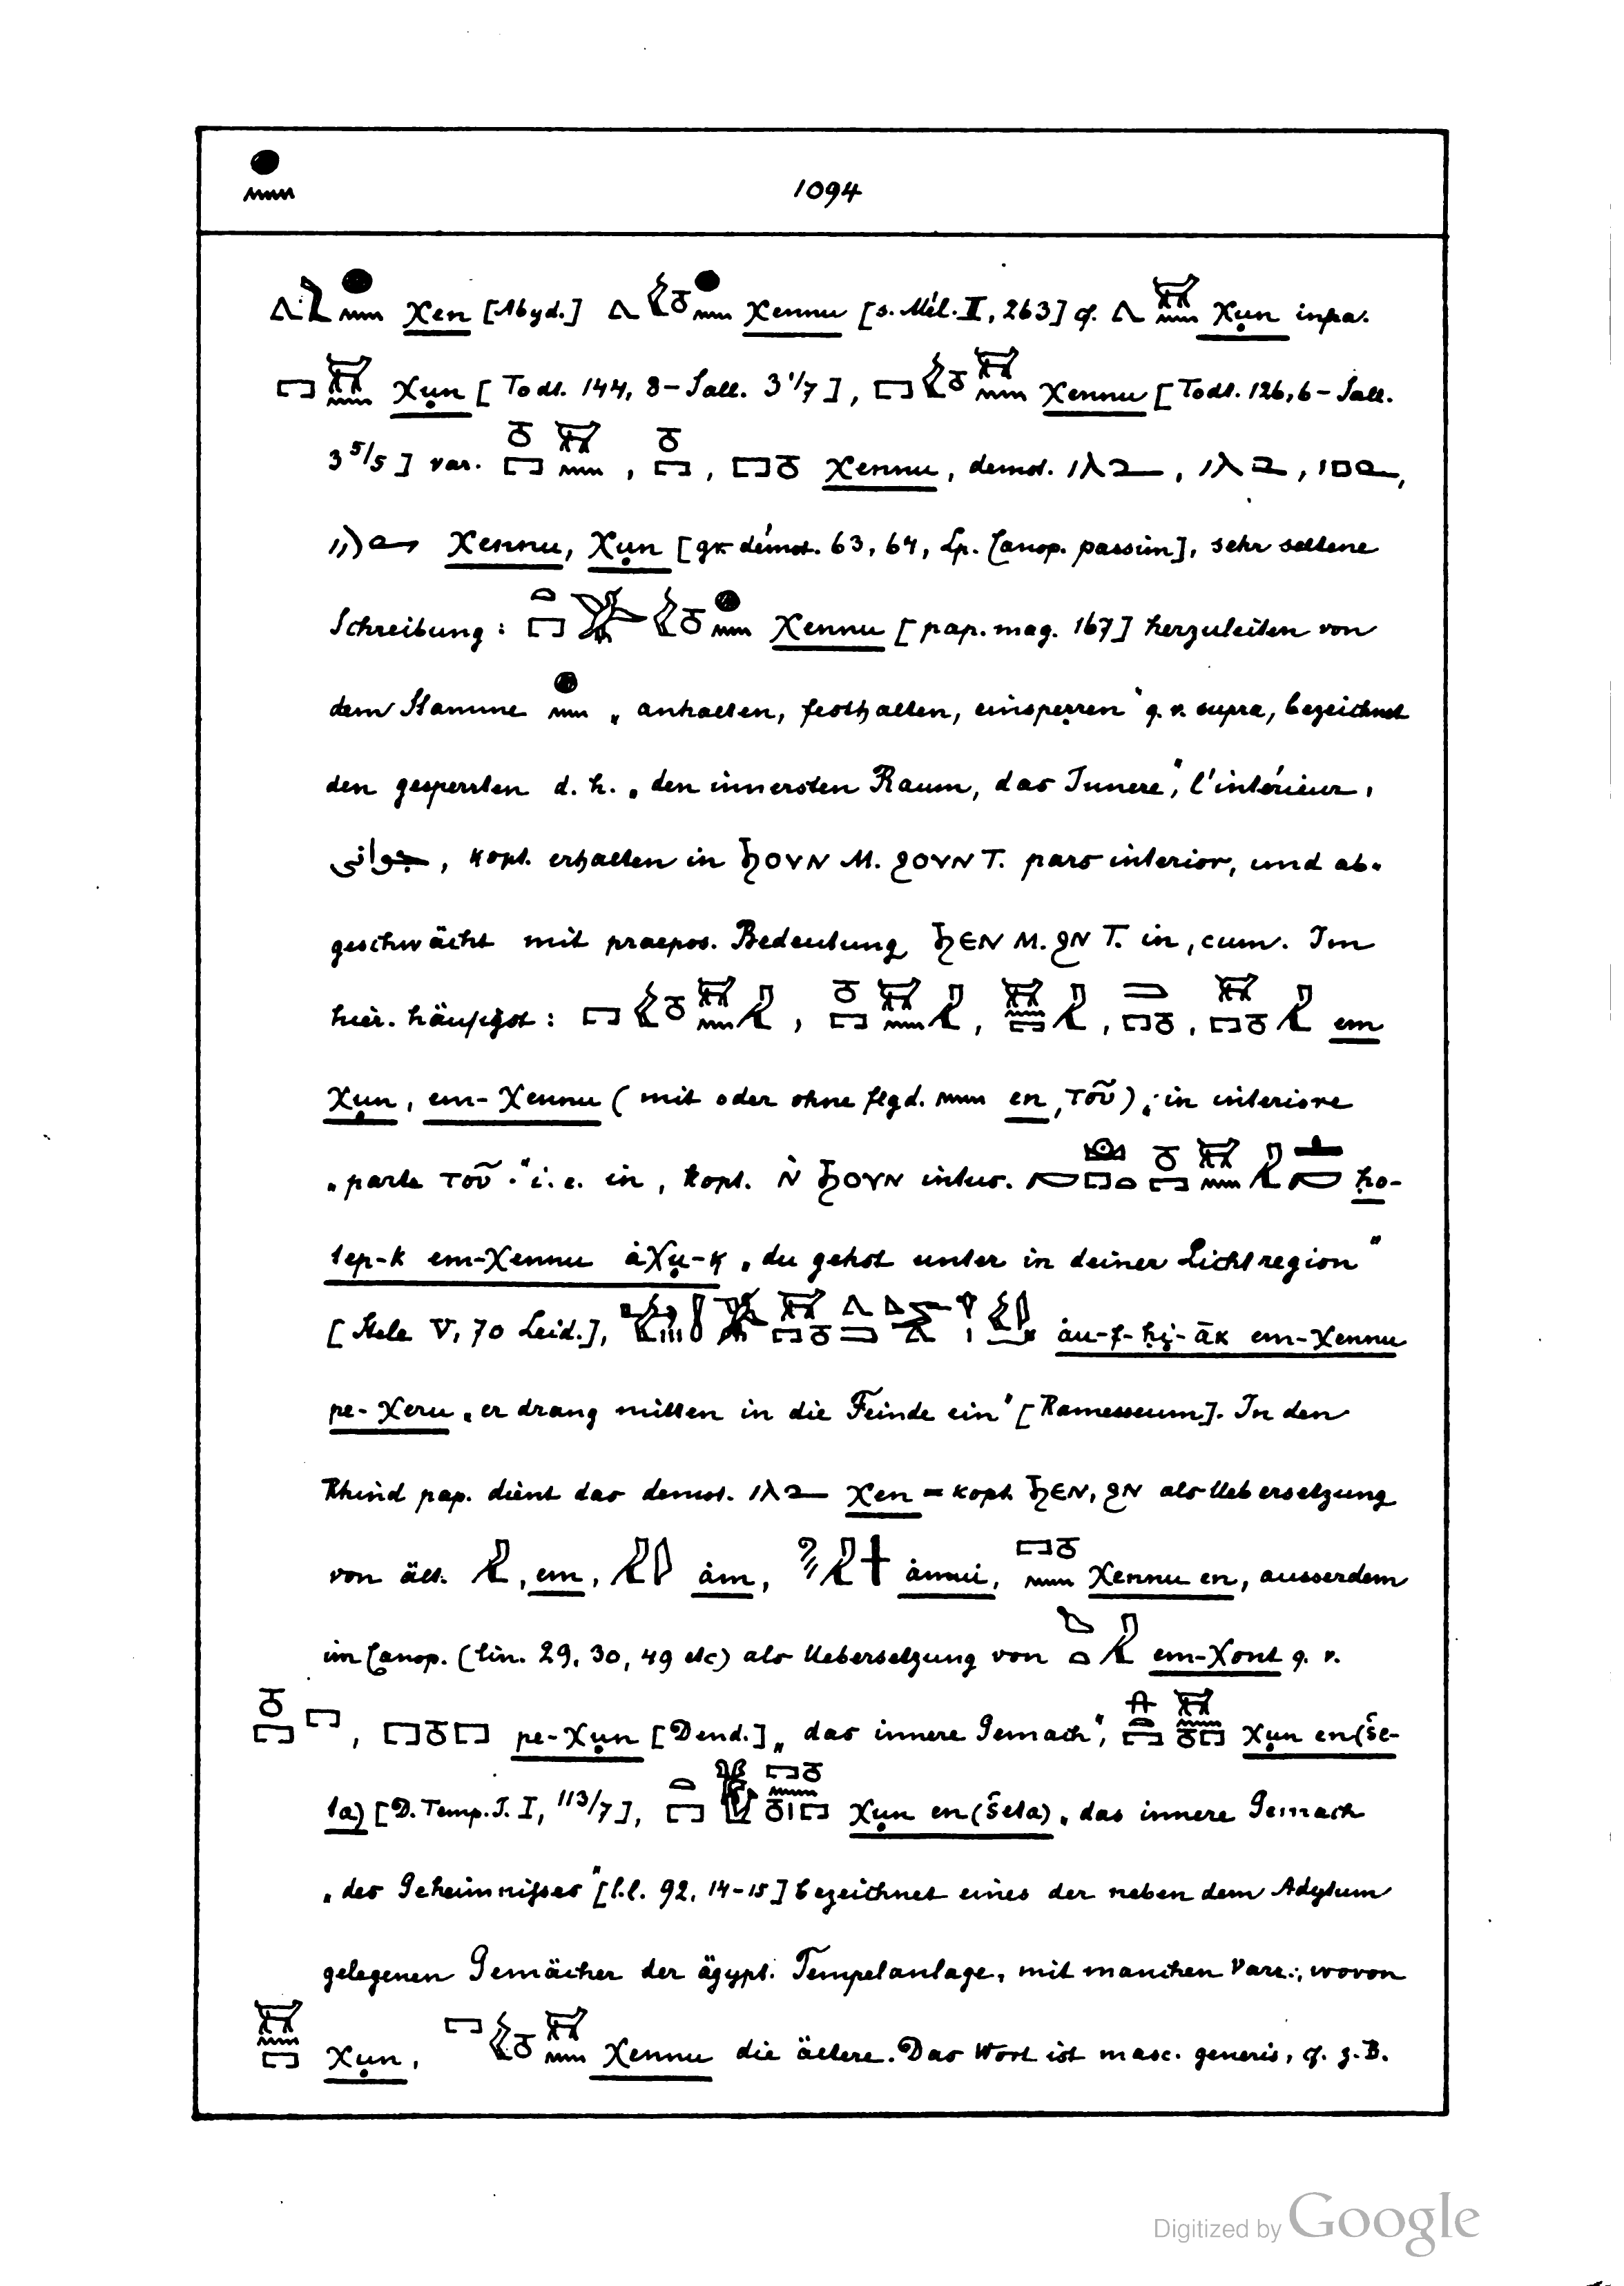 1094
Xen [Abyd.] Xennu [s. Mél. II, 263] cf. Xụn infra.
Xụn [Todt. 144, 8 – Sall. 3 1/7], Xennu [Todt. 126, 6 – Sall.
3 5/5] var. , , Xennu, demot. , , ,
Xennu, Xụn [gr démot. 63, 64, Lp. Canop. passim], sehr seltene
Schreibung: Xennu [pap. mag. 167] herzuleiten von
dem Stamme „anhalten, festhalten, einsperren“ q. v. supra, bezeichnet
den gesperrten d. h. „den innersten Raum, das Innere“, l'intérieur,
جوانى, kopt. erhalten in ϦΟΥΝ M. ϨΟΥΝ T. pars interior, und ab-
geschwächt mit praepos. Bedeutung ϦΕΝ M. ϨΝ T. in, cum. Im
hier. häufigst: , , , , em
Xụn, em-Xennu (mit oder ohne flgd. en, τοῦ), in interiore
„parte τοῦ ·“ i. e. in, kopt. Ǹ ϦΟΥΝ intus. ḥo-
tep-k em-Xennu ȧXụ-k „du gehst unter in deiner Lichtregion“
[Stele V, 70 Leid.], ȧu-f-ḥị-āk em-Xennu
pe-Xeru „er drang mitten in die Feinde ein“ [Ramesseum]. In den
Rhind pap. dient das demot. Xen = kopt. ϦΕΝ, ϨΝ als Uebersetzung
von ält. , em, ȧm, ȧmui, Xennu en, ausserdem
im Canop. (lin. 29, 30, 49 etc) als Uebersetzung von em-Xont q. v.
, pe-Xụn [Dend.] „das innere Gemach“, Xụn en (še-
ta) [D. Temp. I. I, 113/7], Xụn en (šeta) „das innere Gemach
„des Geheimnisses“ [l. l. 92, 14-15] bezeichnet eines der neben dem Adytum
gelegenen Gemächer der ägypt. Tempelanlage, mit manchen Varr., wovon
Xụn, Xennu die ältere. Das Wort ist masc. generis, cf. z. B.
Digitized by Google